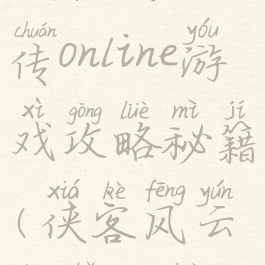 chuán yóu
传online游
xì gōng lüè mì jí
戏攻略秘籍
xiá kè fēng yún
(侠客风云